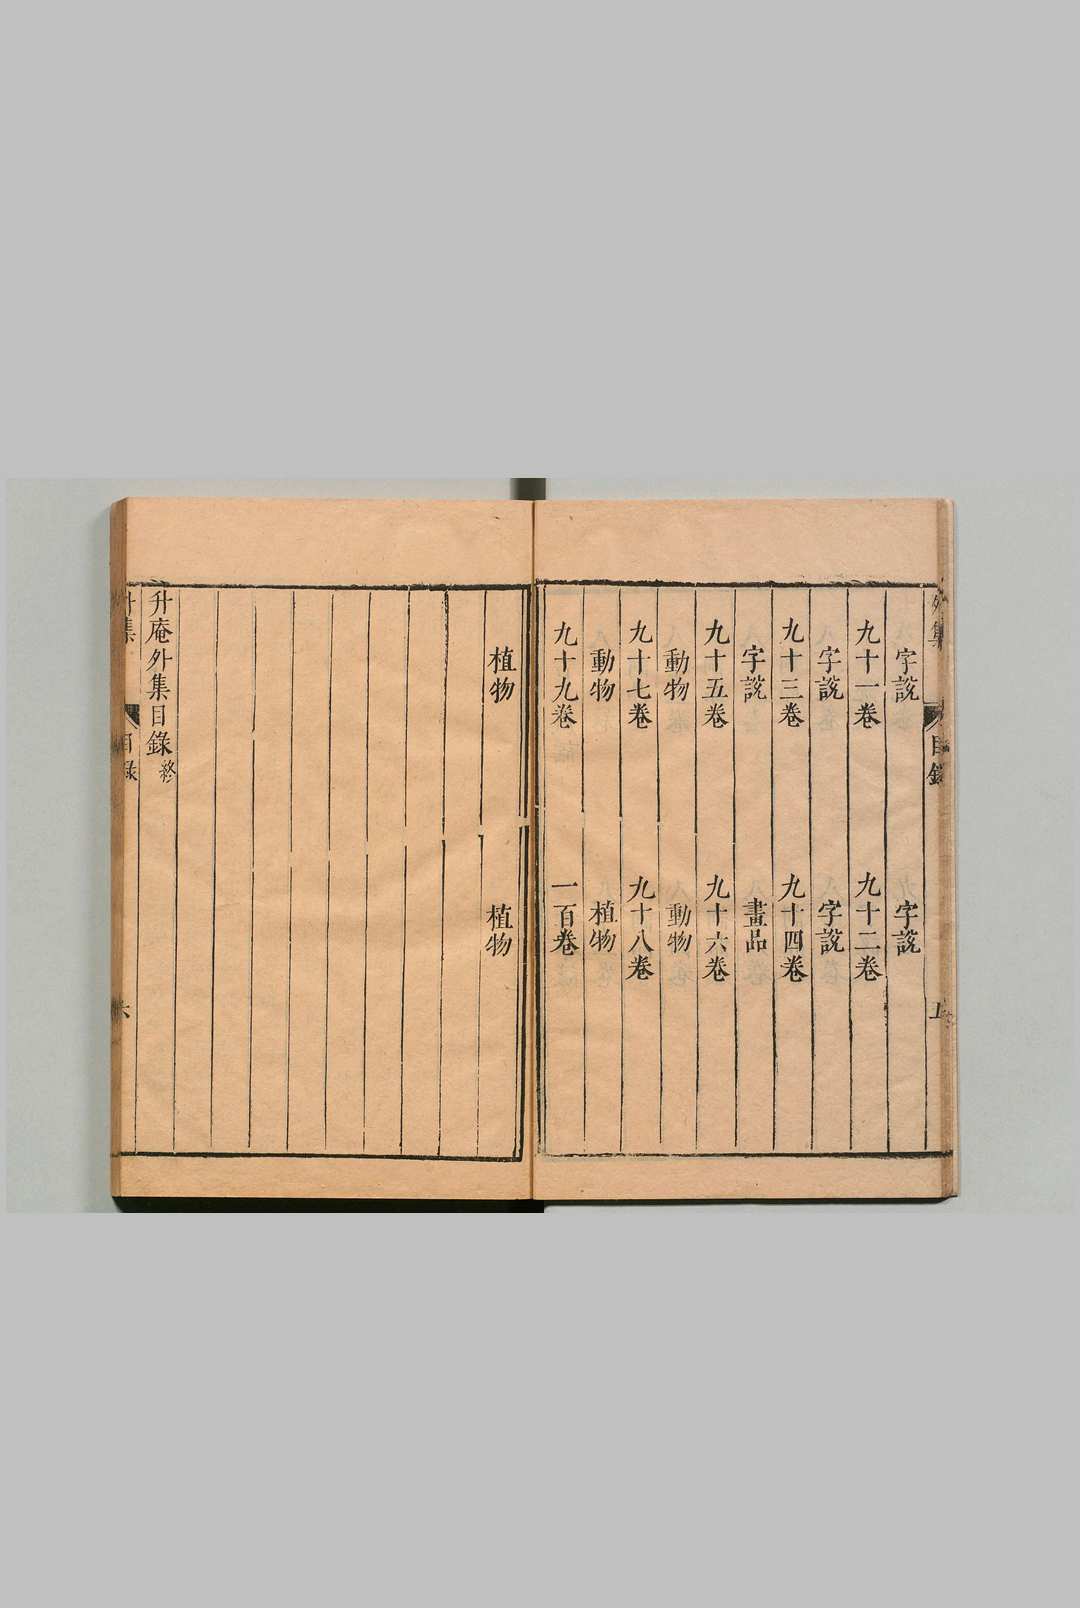 字說　字說
九十一卷　九十二卷
字說　字說
九十三卷　九十四卷
字說　畫品
九十五卷　九十六卷
動物　動物
九十七卷　九十八卷
動物　植物
九十九卷　一百卷
植物　植物
升庵外集目錄終